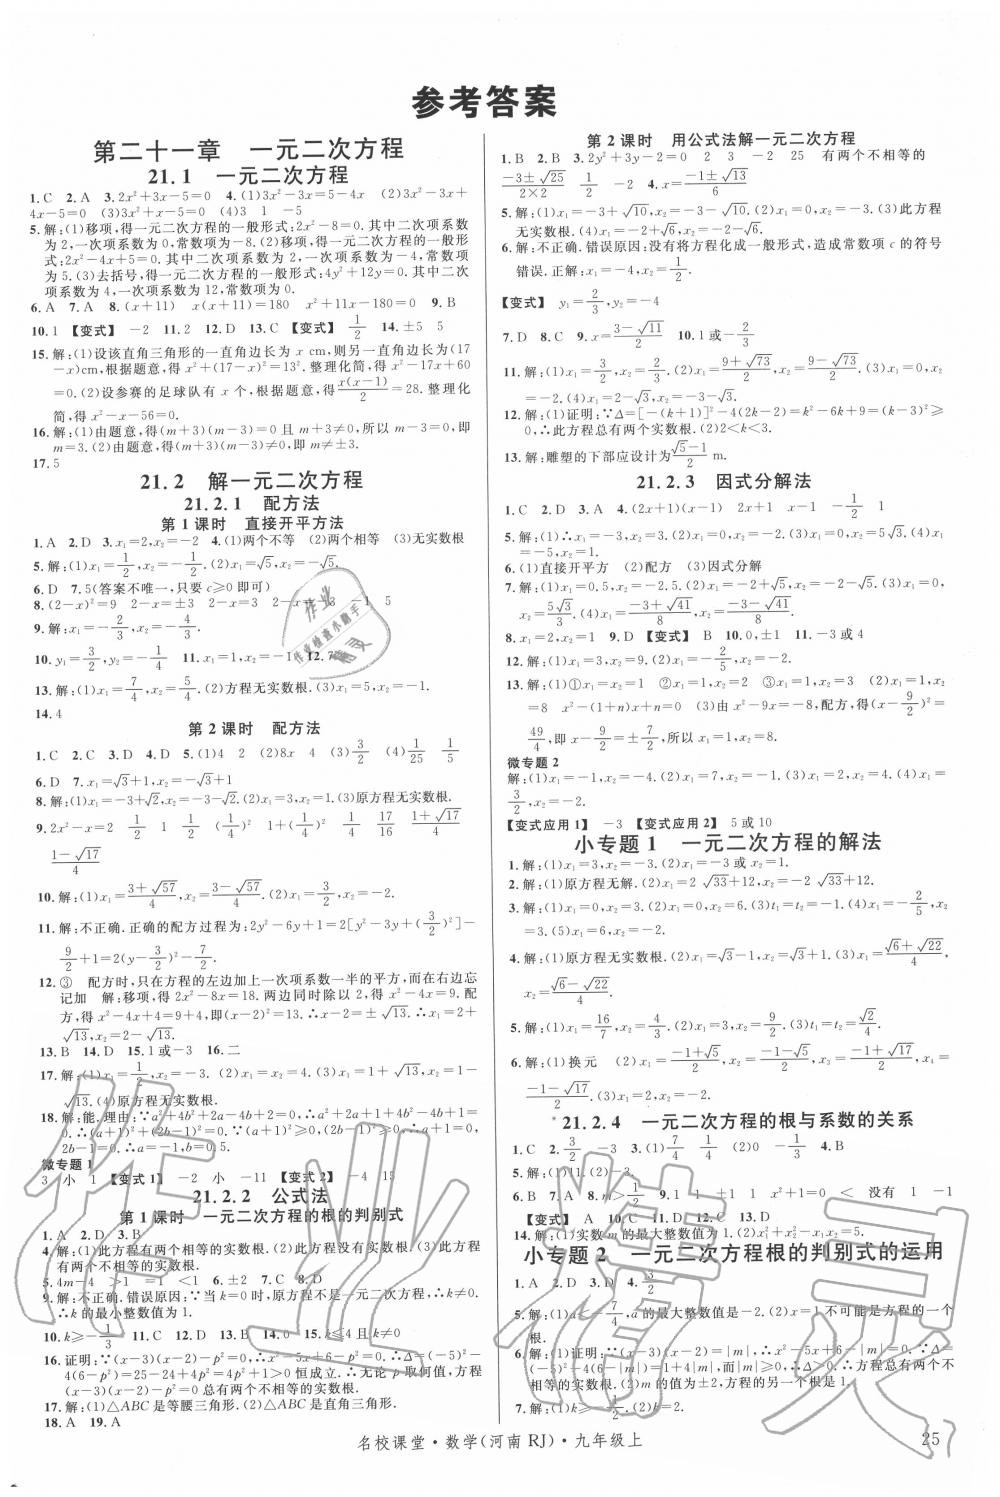 参考答案
第二十一章 一元二次方程
21.1 一元二次方程
1.C 2.A 3.2x²+3x-5=0 4.(1)3x²-3x=5-4x (2)3x²-3x+
4x-5=0 (3)3x²+x-5=0 (4)3 1 -5
5.解:(1)移项,得一元二次方程的一般形式:2x²-8=0.其中二次项系数
为2,一次项系数为0,常数项为-8.(2)移项,得一元二次方程的一般形
式:2x²-4x+5=0.其中二次项系数为2,一次项系数为-4,常数项
为5.(3)去括号,得一元二次方程的一般形式:4y²+12y=0.其中二次
项系数为4,一次项系数为12,常数项为0.
6.A 7.A 8.(x+11) x(x+11)=180 x²+11x-180=0 9.B
10.1 【变式】 -2 11.2 12.D 13.C【变式】 1/2 14.±5 5
15.解:(1)设该直角三角形的一直角边长为 x cm,则另一直角边长为(17
-x)cm,根据题意,得 x²+(17-x)²=13².整理化简,得 x²-17x+60
=0.(2)设参赛的足球队有 x 个,根据题意,得x(x-1)/2=28.整理化
简,得 x²-x-56=0.
16.解:(1)由题意,得(m+3)(m-3)=0 且 m+3≠0,所以 m-3=0,即
m=3.(2)由题意,得(m+3)(m-3)≠0,即 m≠±3.
17.5
21.2 解一元二次方程
21.2.1 配方法
第1课时 直接开平方法
1.A 2.D 3.x₁=2,x₂=-2 4.(1)两个不等 (2)两个相等 (3)无实数根
5.解:(1)x₁=1/2,x₂=-1/2.(2)x₁=√5,x₂=-√5.
6.D 7.5(答案不唯一,只要 c≥0 即可)
8.(2-x)²=9 2-x=±3 2-x=3 2-x=-3 -1 5
9.解:x₁=-2/3,x₂=-4/3.
10.y₁=3/2,y₂=-1/2 11.x₁=1,x₂=-1 12.7
13.解:(1)x₁=7/4,x₂=5/4.(2)方程无实数根.(3)x₁=5,x₂=-1.
14.4
第2课时 配方法
1.C 2.C 3.D 4.D 5.(1)4 2 (2)8x 4 (3)3/2 (4)1/25 1/5
6.D 7.x₁=√3+1,x₂=-√3+1
8.解:(1)x₁=-3+√2,x₂=-3-√2.(2)x₁=3,x₂=1.(3)原方程无实数根.
9.2x²-x=2 1/2 1 1/2 (1/4)² 1 (1/4)² 1/4 17/16 (1+√17)/4
(1-√17)/4
10.解:(1)x₁=(3+√57)/4,x₂=(3-√57)/4.(2)原方程无实数根.
11.解:不正确.正确的配方过程为:2y²-6y+1=2[y²-3y+(3/2)²]-
9/2+1=2(y-3/2)²-7/2.
12.③ 配方时,只在方程的左边加上一次项系数一半的平方,而在右边忘
记加 解:移项,得 2x²-8x=18.两边同时除以2,得 x²-4x=9.配
方,得 x²-4x+4=9+4,即(x-2)²=13.∴x-2=±√13.∴x₁=2+
√13,x₂=2-√13.
13.B 14.D 15.1或-3 16.二
17.解:(1)x₁=-2,x₂=-3.(2)x₁=4,x₂=-2.(3)x₁=1+√13,x₂=1-
√13.(4)原方程无实数根.
18.解:能.理由:∵a²+4b²+2a-4b+2=0,∴a²+2a+1+4b²-4b+1=
0.∴(a+1)²+(2b-1)²=0.∵(a+1)²≥0,(2b-1)²≥0,∴a+1=0,
2b-1=0.∴a=-1,b=0.5.
微专题1
3 小 1 【变式1】 -2 小 -11 【变式2】 -4 15
21.2.2 公式法
第1课时 一元二次方程的根的判别式
1.A 2.D 3.B
4.解:(1)此方程有两个相等的实数根.(2)此方程没有实数根.(3)此方程
有两个不相等的实数根.
5.4m-4 >1 =1 <1 6.±2 7.C 8.D
9.解:不正确.错误原因:当k=0时,原方程不是一元二次方程,∴k≠0.
∴k的最小整数值为1.
10.k≥-1/3 11.C 12.C 13.B 14.0 15.k<4
16.证明:∵(x-3)(x-2)-p²=0,∴x²-5x+6-p²=0.∴Δ=(-5)²-
4(6-p²)=25-24+4p²=4p²+1>0恒成立.∴无论 p 取何值,方程
(x-3)(x-2)-p²=0总有两个不相等的实数根.
17.解:(1)△ABC是等腰三角形.(2)△ABC是直角三角形.
18.A 19.A
第2课时 用公式法解一元二次方程
1.B 2.B 3.2y²+3y-2=0 2 3 -2 25 有两个不相等的
(-3±√25)/(2×2) 1/2 -2 4.x=(-1±√13)/6
5.解:(1)x₁=-3+√10,x₂=-3-√10.(2)x₁=2,x₂=-3.(3)此方程
无实数根.(4)x₁=x₂=-√2.
6.解:不正确.错误原因:没有将方程化成一般形式,造成常数项 c 的符号
错误.正解:x₁=-4,x₂=1/2.
【变式】 y₁=2/3,y₂=-4
7.D 8.C 9.x=(3-√11)/2 10.1或-2/3
11.解:(1)x₁=1/3,x₂=1/3.(2)x₁=(9+√73)/2,x₂=(9-√73)/2.(3)x₁=0,x₂=
-2.(4)x₁=2-√3,x₂=-3-√3.
12.解:(1)证明:∵Δ=[-(k+1)]²-4(2k-2)=k²-6k+9=(k-3)²≥
0,∴此方程总有两个实数根.(2)2<k<3.
13.解:雕塑的下部应设计为(√5-1)/2 m.
21.2.3 因式分解法
1.C 2.D 3.A 4.(2x+1)(x-1) 2x+1 x-1 -1/2 1
5.解:(1)∴x₁=-3,x₂=3.(2)x₁=0,x₂=7.(3)x₁=x₂=5√3.(4)x₁=
-5,x₂=-1.
6.(1)直接开平方 (2)配方 (3)因式分解
7.解:(1)x₁=0.5,x₂=-2.5.(2)x₁=-2+√5,x₂=-2-√5.(3)x₁=0,
x₂=5√3/3.(4)x₁=(-3+√41)/8,x₂=(-3-√41)/8.
8.x₁=1,x₂=1 9.D 【变式】 B 10.0,±1 11.-3或4
12.解:(1)x₁=3,x₂=9.(2)x₁=-2/5,x₂=-2.
13.解:(1)①x₁=x₂=1 ②x₁=1,x₂=2 ③x₁=1,x₂=3 (2)x₁=1,x₂=
8 x²-(1+n)x+n=0 (3)由 x²-9x=-8,配方,得(x-9/2)²=
49/4,即x-9/2=±7/2,∴x₁=1,x₂=8.
微专题2
解:(1)x₁=-1,x₂=4.(2)x₁=-3,x₂=-4.(3)x₁=2,x₂=4.(4)x₁=
3/2,x₂=-2.
【变式应用1】 -3 【变式应用2】 5或10
小专题1 一元二次方程的解法
1.解:(1)x₁=3,x₂=-3.(2)x=-3或x=1.
2.解:(1)原方程无解.(2)x₁=2√33+12,x₂=-2√33+12.
3.解:(1)x₁=0,x₂=3.(2)x₁=0,x₂=2.(3)t₁=t₂=-1.(4)x₁=-2/5,x₂
=3.(5)x₁=2,x₂=6.
4.解:(1)原方程无实数根.(2)x₁=√3-1,x₂=-√3-1.(3)x₁=(√6+√22)/4,
x₂=(√6-√22)/4.
5.解:(1)x₁=16/7,x₂=4/3.(2)x₁=3,x₂=9/2.(3)t₁=t₂=√2/2.
6.解:(1)换元 (2)x₁=(-1+√5)/2,x₂=(-1-√5)/2,x₃=(-1+√17)/2,x₄=
(-1-√17)/2.(3)x₁=2,x₂=-2.
21.2.4 一元二次方程的根与系数的关系
1.C 2.3/2 -3 3.(1)7/4 1/4 (2)0 -1/3 4.B
6.B 7.A 9.1 1 ±1 -1 0 < 没有 1 -1
【变式】 A 10.C 11.D 12.C 13.D
小专题2 一元二次方程根的判别式的运用
1.A 2.D 3.D
名校课堂·数学(河南 RJ)·九年级上
25
作业
作业检查小助手
精灵
作业精灵